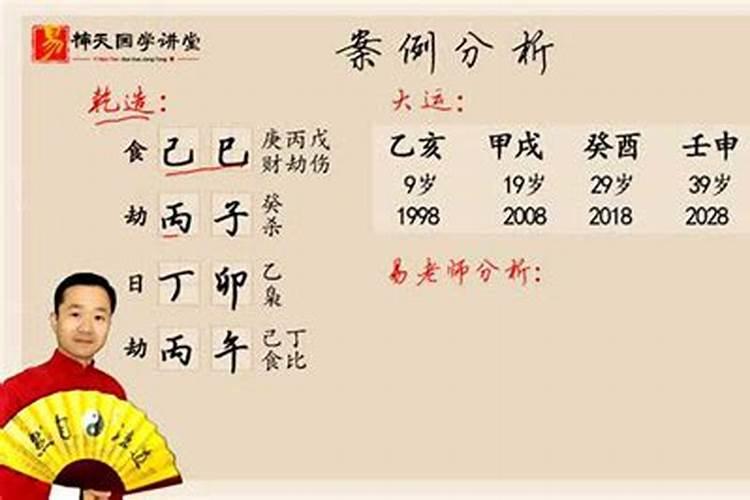 易 天国学讲堂
案例分析
乾造：
食 己 巳 庚丙戊
财劫伤
劫 丙 子 癸
杀
日 丁 卯 乙
枭
劫 丙 午 己丁
食比
大运：
乙亥 甲戌 癸酉 壬申
9岁 19岁 29岁 39岁
1998 2008 2018 2028
易老师分析：
自